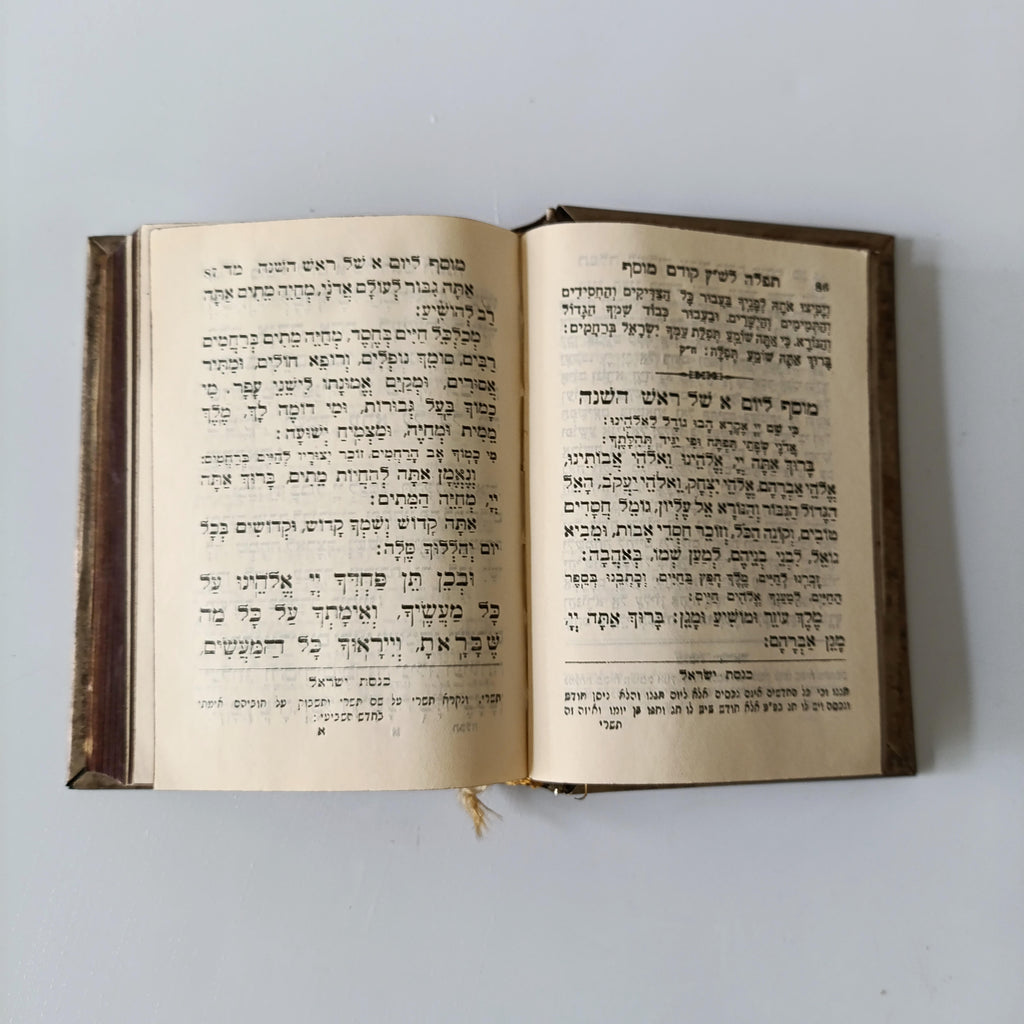 86 תפלה לש״ץ קודם מוסף
אוֹתָהּ לְפָנֶיךָ בַּעֲבוּר כָּל הַצַּדִּיקִים וְהַחֲסִידִים
וְהַתְּמִימִים וְהַיְשָׁרִים. וּבַעֲבוּר כְּבוֹד שִׁמְךָ הַגָּדוֹל
וְהַנּוֹרָא. כִּי אַתָּה שׁוֹמֵעַ תְּפִלַּת עַמְּךָ יִשְׂרָאֵל בְּרַחֲמִים:
בָּרוּךְ אַתָּה שׁוֹמֵעַ תְּפִלָּה: ח״ק
מוסף ליום א של ראש השנה
כִּי שֵׁם יְיָ אֶקְרָא הָבוּ גֹדֶל לֵאלֹהֵינוּ:
אֲדֹנָי שְׂפָתַי תִּפְתָּח וּפִי יַגִּיד תְּהִלָּתֶךָ:
בָּרוּךְ אַתָּה יְיָ, אֱלֹהֵינוּ וֵאלֹהֵי אֲבוֹתֵינוּ,
אֱלֹהֵי אַבְרָהָם, אֱלֹהֵי יִצְחָק, וֵאלֹהֵי יַעֲקֹב, הָאֵל
הַגָּדוֹל הַגִּבּוֹר וְהַנּוֹרָא אֵל עֶלְיוֹן, גּוֹמֵל חֲסָדִים
טוֹבִים, וְקוֹנֵה הַכֹּל, וְזוֹכֵר חַסְדֵי אָבוֹת, וּמֵבִיא
גוֹאֵל, לִבְנֵי בְנֵיהֶם, לְמַעַן שְׁמוֹ, בְּאַהֲבָה:
זָכְרֵנוּ לְחַיִּים, מֶלֶךְ חָפֵץ בַּחַיִּים, וְכָתְבֵנוּ בְּסֵפֶר
הַחַיִּים, לְמַעַנְךָ אֱלֹהִים חַיִּים:
מֶלֶךְ עוֹזֵר וּמוֹשִׁיעַ וּמָגֵן: בָּרוּךְ אַתָּה יְיָ,
מָגֵן אַבְרָהָם:
כנסת ישראל
וכי כל החדשים אינם נכסים אלא ליום חגנו והלא ניסן חודש
ואיזה זה
תשרי
מוסף ליום א של ראש השנה מד 87
אַתָּה גִּבּוֹר לְעוֹלָם אֲדֹנָי, מְחַיֵּה מֵתִים אַתָּה
רַב לְהוֹשִׁיעַ:
מְכַלְכֵּל חַיִּים בְּחֶסֶד, מְחַיֵּה מֵתִים בְּרַחֲמִים
רַבִּים, סוֹמֵךְ נוֹפְלִים, וְרוֹפֵא חוֹלִים, וּמַתִּיר
אֲסוּרִים, וּמְקַיֵּם אֱמוּנָתוֹ לִישֵׁנֵי עָפָר. מִי
כָמוֹךָ בַּעַל גְּבוּרוֹת, וּמִי דוֹמֶה לָּךְ, מֶלֶךְ
מֵמִית וּמְחַיֶּה, וּמַצְמִיחַ יְשׁוּעָה:
מִי כָמוֹךָ אַב הָרַחֲמִים, זוֹכֵר יְצוּרָיו לְחַיִּים בְּרַחֲמִים:
וְנֶאֱמָן אַתָּה לְהַחֲיוֹת מֵתִים, בָּרוּךְ אַתָּה
יְיָ, מְחַיֵּה הַמֵּתִים:
אַתָּה קָדוֹשׁ וְשִׁמְךָ קָדוֹשׁ, וּקְדוֹשִׁים בְּכָל
יוֹם יְהַלְלוּךָ סֶּלָה:
וּבְכֵן תֵּן פַּחְדְּךָ יְיָ אֱלֹהֵינוּ עַל
כָּל מַעֲשֶׂיךָ, וְאֵימָתְךָ עַל כָּל מַה
שֶּׁבָּרָאתָ, וְיִירָאוּךָ כָּל הַמַּעֲשִׂים
כנסת ישראל
תשרי, ונקרא תשרי על שם תשרי ותשבוק על חוביהם אימתי
לחדש השביעי:
א